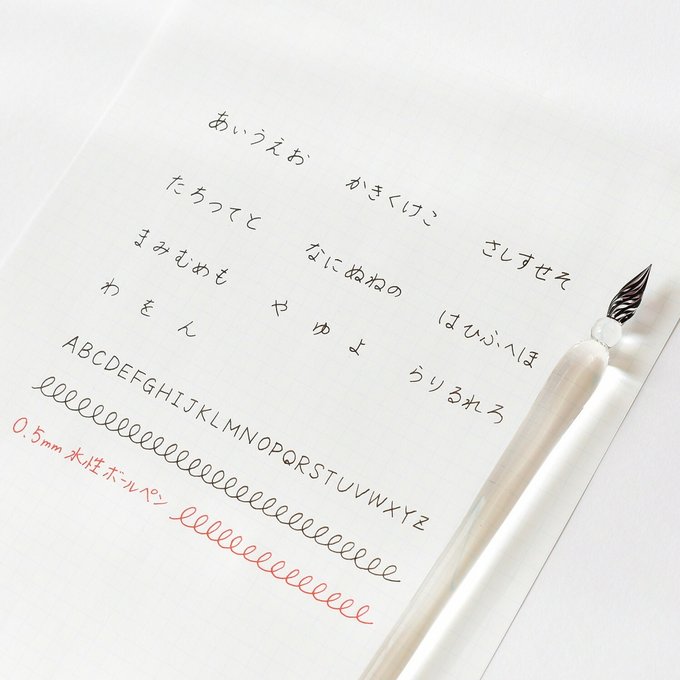 あいうえお かきくけこ さしすせそ
たちつてと なにぬねの はひふへほ
まみむめも や ゆ よ らりるれろ
わ を ん
ABCDEFGHIJKLMNOPQRSTUVWXYZ
0.5mm 水性ボールペン